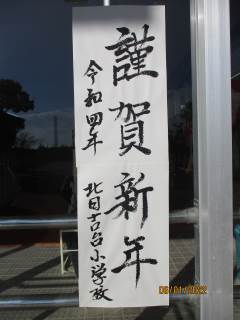 謹賀新年
令和四年
北日吉台小学校
05/01/2022